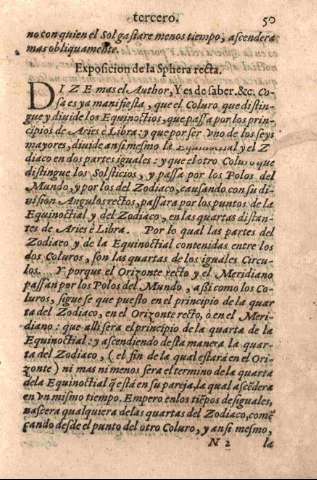 tercero. 50
no con quien el Sol gastare menos tiempo, ascendera
mas obliquamente.
Exposicion de la Sphera recta.
DIZE mas el Author, Y es de saber. &c. Co-
sa es ya manifiesta, que el Coluro que distin-
gue y diuide los Equinoctios, que passa por los prin-
cipios de Aries e Libra: y que por ser vno de los seys
mayores, diuide ansi mesmo la Equinoctial y el Z
diaco en dos partes iguales: y que el otro Coluro que
distingue los Solsticios, y passa por los Polos del
Mundo, y por los del Zodiaco, causando con su di-
uision Angulos rectos, passara por los puntos de la
Equinoctial y del Zodiaco, en las quartas distan-
tes de Aries è Libra. Por lo qual las partes del
Zodiaco y de la Equinoctial contenidas entre los
dos Coluros, son las quartas de los iguales Circu-
los. Y porque el Orizonte recto y el Meridiano
passan por los Polos del Mundo, assi como los Co-
luros, sigue se que puesto en el principio de la quar
ta del Zodiaco, en el Orizonte recto, ò en el Meri-
diano: que alli sera el principio de la quarta de la
Equinoctial: y ascendiendo desta manera la quar-
ta del Zodiaco, (el fin de la qual estará en el Ori-
zonte) ni mas ni menos sera el termino de la quarta
de la Equinoctial q̃ està en su pareja, la qual ascẽdera
en vn mismo tiempo. Empero en los tiẽpos desiguales,
nascera qualquiera de las quartas del Zodiaco, comẽ
çando desde el punto del otro Coluro, y ansi mesmo,
N 2 la